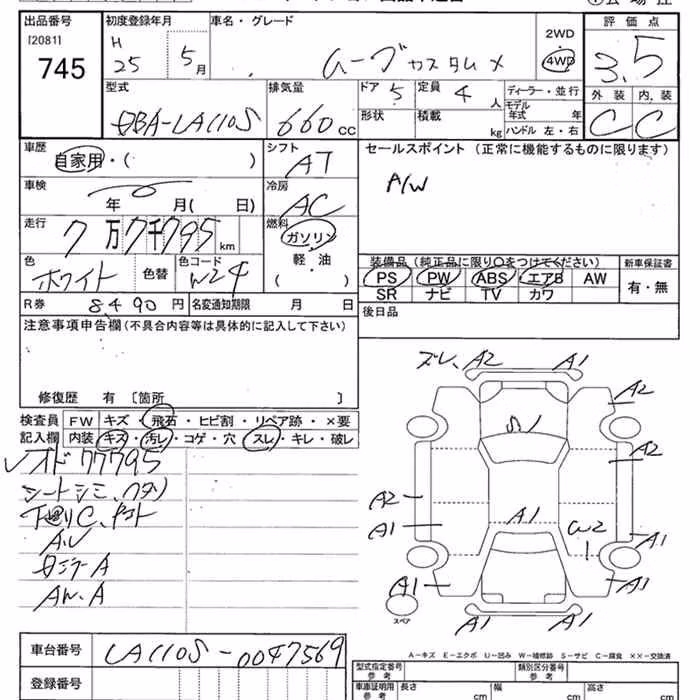 出品番号 初度登録年月 車名・グレード 評価点
[20811] 745
H 25 5月 ムーブカスタム X 2WD 4WD 3.5
型式 排気量 ドア 5 定員 4人 ディーラー・並行 外装 内装
DBA-LA110S 660cc 形状 積載 kg モデル年式 年 ハンドル 左・右 C C
車歴 自家用・( ) シフト AT セールスポイント (正常に機能するものに限ります)
A/W
車検 年 月( 日) 冷房 AC
走行 7万7千795km 燃料 ガソリン・軽・油 ( )
色 ホワイト 色替 色コード W24
装備品 (純正品に限り○をつけてください) 新車保証書
PS PW ABS エアB AW 有・無
SR ナビ TV カワ
R券 8490円 名変通知期限 月 日 後日品
注意事項申告欄 (不具合内容等は具体的に記入して下さい)
修復歴 有 [箇所 ]
検査員記入欄 FW キズ・飛石・ヒビ割・リペア跡・×要
内装 キズ・汚レ・コゲ・穴・スレ・キレ・破レ
77795
シートシミ、
A.U
AW.A
ズレ、A2 A1
A2
S/1
A2
A2 A1
A1 W2
A1
A1 A1
スペア A1 A1
A-キズ E-エクボ U-凹み W-補修跡 S-サビ C-腐食 ××-交換済
車台番号 LA110S-0047569
登録番号
型式指定番号 参考 類別区分番号 参考
車車証明用 参考 長さ cm 幅 cm 高さ cm